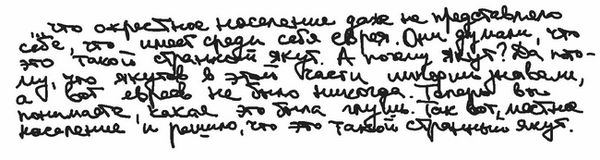 , что окрестное население даже не представляло
себе, что имеет среди себя еврея. Они думали, что
это такой странный якут. А почему якут? Да пото-
му, что якутов в этой части империи знавали,
а вот евреев не было никогда. Теперь вы
понимаете, какая это была глушь. Так вот, местное
население и решило, что это такой странный якут.